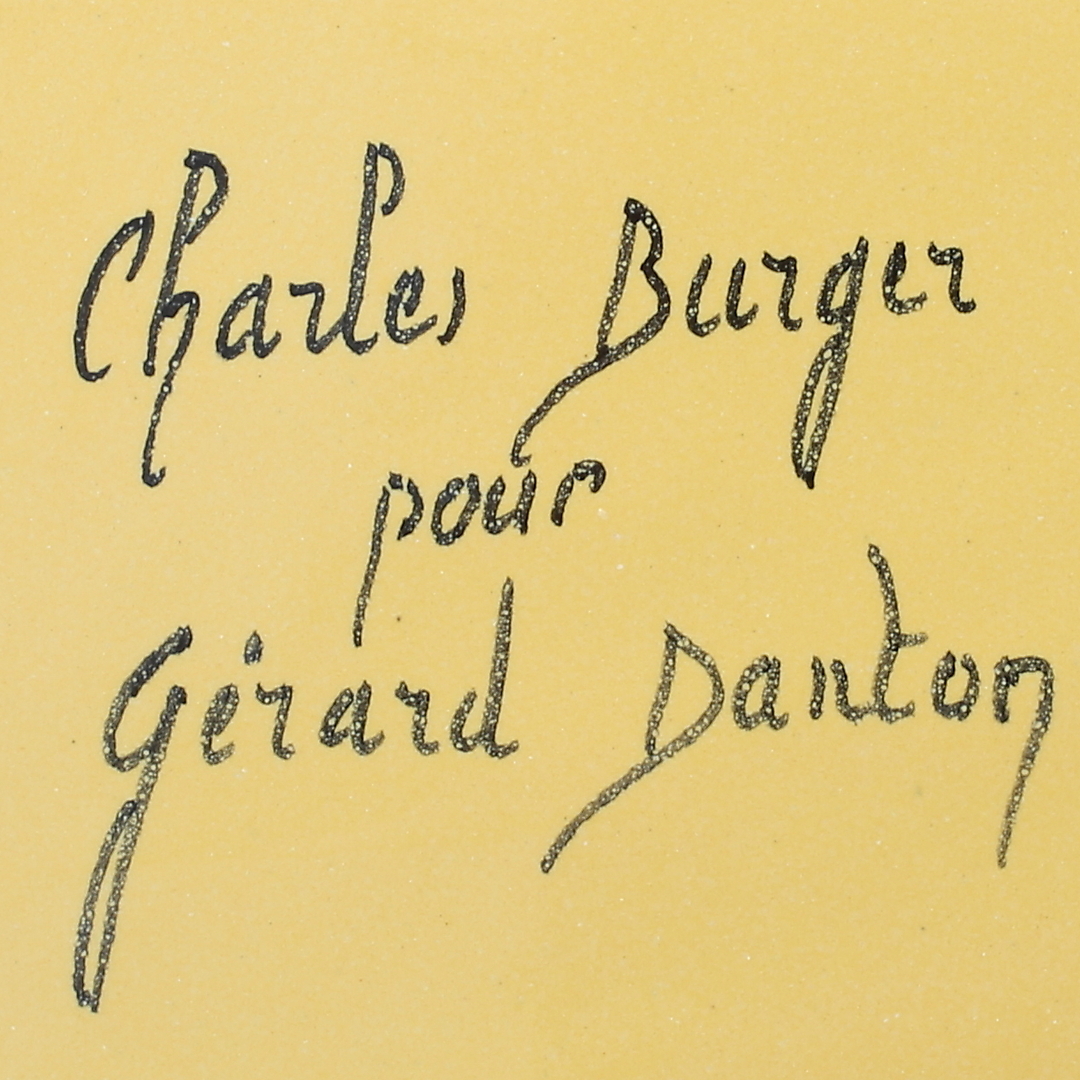 Charles Burger
pour
Gérard Danton